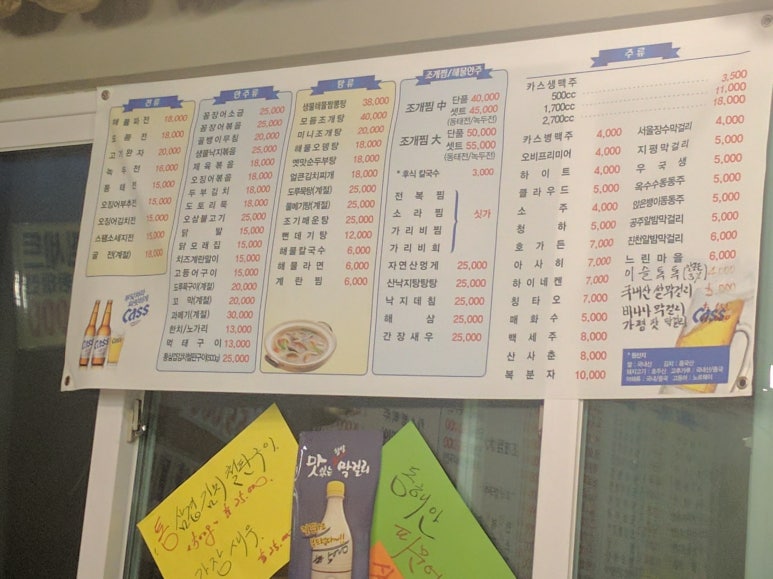 전류
해물파전 18,000
모듬전 18,000
고기완자 20,000
녹두전 16,000
동태전 15,000
오징어부추전 15,000
오징어김치전 15,000
스팸소세지전 15,000
굴전(계절) 18,000
안주류
꼼장어소금 25,000
꼼장어볶음 25,000
골뱅이무침 20,000
생물낙지볶음 25,000
제육볶음 18,000
오징어볶음 18,000
두부김치 18,000
도토리묵 18,000
오삼불고기 25,000
닭발 15,000
닭모래집 15,000
치즈계란말이 15,000
고등어구이 15,000
도루묵구이(계절) 20,000
꼬막(계절) 20,000
과메기(계절) 30,000
한치/노가리 13,000
먹태구이 13,000
통삼겹김치철판구이(500g) 25,000
탕류
생물해물짬뽕탕 38,000
모듬조개탕 40,000
미니조개탕 20,000
해물오뎅탕 18,000
옛맛순두부탕 18,000
얼큰김치찌개 18,000
도루묵탕(계절) 25,000
물메기탕(계절) 25,000
조기매운탕 25,000
뻔데기탕 12,000
해물칼국수 6,000
해물라면 6,000
계란찜 6,000
조개찜/해물안주
조개찜 中 단품 40,000
셋트 45,000
(동태전/녹두전)
조개찜 大 단품 50,000
셋트 55,000
(동태전/녹두전)
* 후식 칼국수 3,000
전복찜
소라찜
가리비찜
가리비회
싯가
자연산멍게 25,000
산낙지탕탕탕 25,000
낙지데침 25,000
해삼 25,000
간장새우 25,000
주류
카스생맥주
500cc 3,500
1,700cc 11,000
2,700cc 18,000
카스병맥주 4,000
오비프리미어 4,000
하이트 4,000
클라우드 5,000
소주 4,000
청하 5,000
호가든 7,000
아사히 7,000
하이네켄 7,000
칭타오 7,000
매화수 5,000
백세주 8,000
산사춘 8,000
복분자 10,000
서울장수막걸리 4,000
지평막걸리 4,000
우국생 4,000
옥수수동동주 5,000
잎은뱅이동동주 5,000
공주알밤막걸리 5,000
진천알밤막걸리 6,000
느린마을 6,000
이슬톡톡
국내산 쌀막걸리
바나나 막걸리
가평 잣 막걸리
Cass
Cass
* 원산지
쌀 : 국내산 김치 : 중국산
돼지고기 : 호주산 고추가루 : 국내산/중국
먹태류 : 국내/중국 고등어 : 노르웨이
통 삼겹 김치 철판구이
500g - ₩ 25.000
간장 새우
₩ 25.000
맛있는 막걸리
동해안